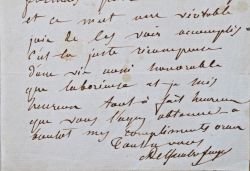 et ce m'est une véritable
joie de les voir accomplis
C'est la juste récompense
d'une vie aussi honorable
que laborieuse et je suis
heureux tout à fait heureux
que vous l'ayez obtenue
mes compliments
Tout à vous